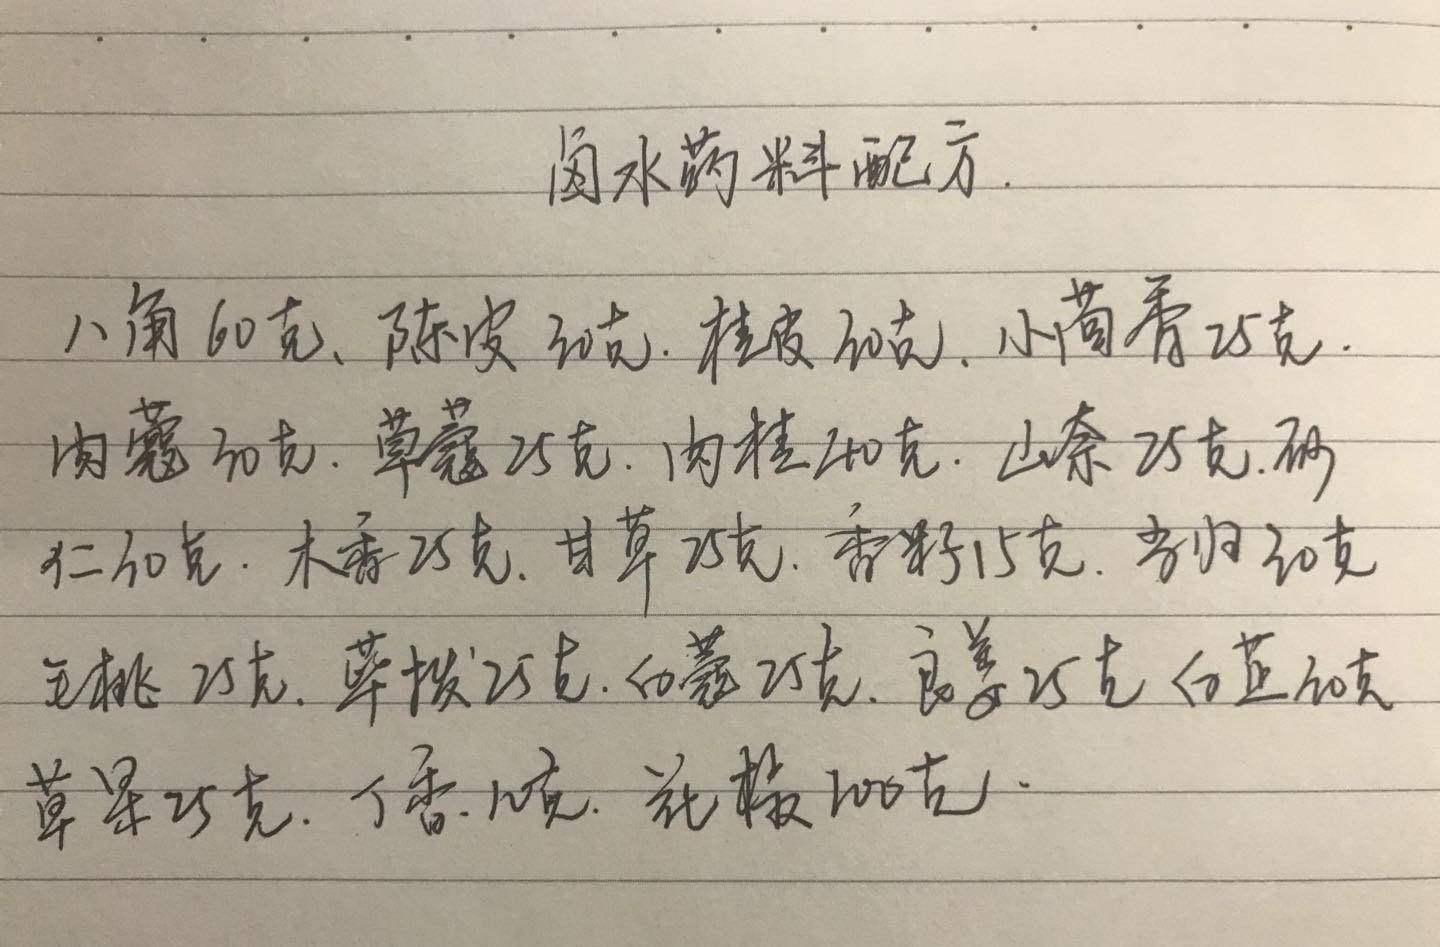 卤水药料配方.
八角60克、陈皮30克.桂皮30克、小茴香25克.
肉蔻30克.草蔻25克.肉桂40克.山奈25克.砂
仁30克.木香25克.甘草25克.香籽15克.当归30克
毛桃25克.荜拨25克.白蔻25克.良姜25克 白芷30克
草果25克.丁香.10克.花椒100克.